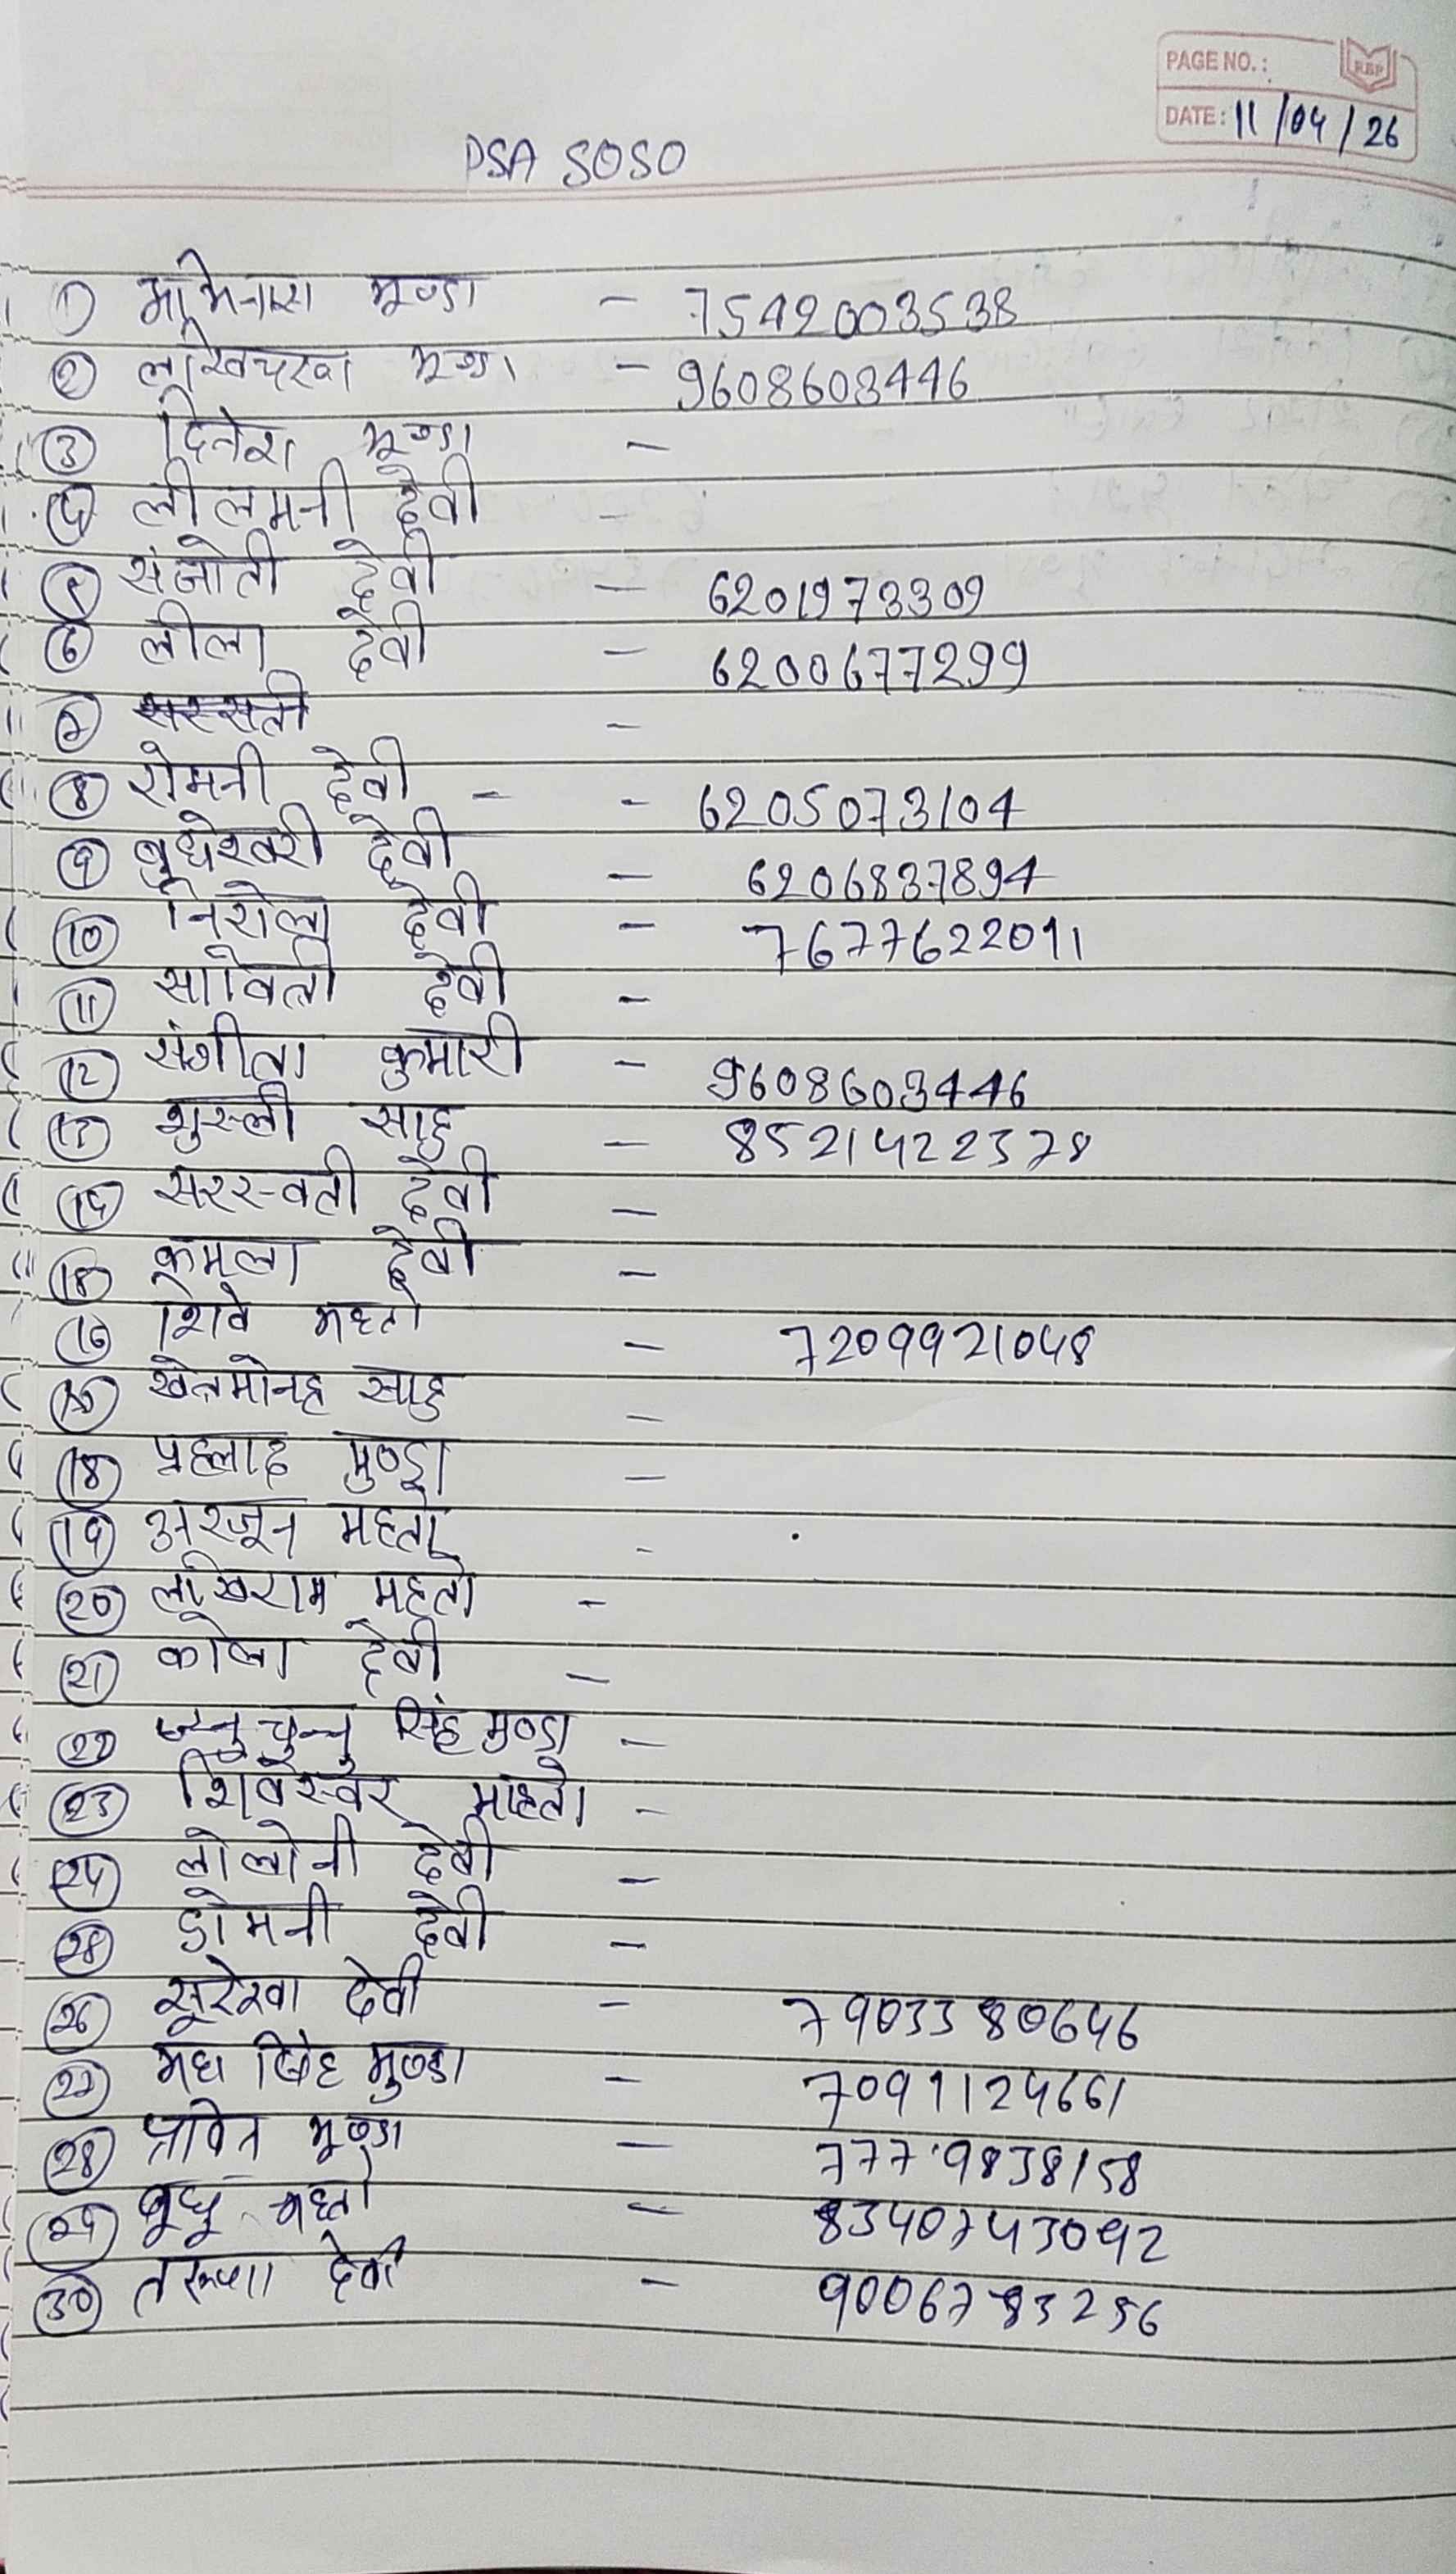 PAGE NO.:
RBP
DATE: 11/04/26
PSA SOSO
① मुण्डा - 7542003538
② लखिचरण मुण्डा - 9608603446
③ दिनेश मुण्डा -
④ लीलमनी देवी -
⑤ संजोती देवी - 6201973309
⑥ लीला देवी - 6200677299
⑦ सरस्सती -
⑧ रोमनी देवी - - 6205073104
⑨ बुधेश्वरी देवी - 6206837894
⑩ निरोला देवी - 7677622091
⑪ सावित्री देवी -
⑫ संगीता कुमारी - 9608603446
⑬ साहु - 8521422378
⑭ सरस्वती देवी -
⑮ कमला देवी -
⑯ शिवे महतो - 7209921048
⑰ खेतमोनह साहु -
⑱ प्रहलाद मुण्डा -
⑲ अरजून महतो -
⑳ लखिराम महतो -
㉑ कोला देवी -
㉒ चुन्नु सिंह मुण्डा -
㉓ शिवेस्वर माहतो -
㉔ लोलोनी देवी -
㉕ डोमनी देवी -
㉖ सुरेखा देवी - 7903380646
㉗ सिंह मुण्डा - 7091124661
㉘ मुण्डा - 7779838158
㉙ बुधू महतो - 8340743092
㉚ देवी - 9006783256